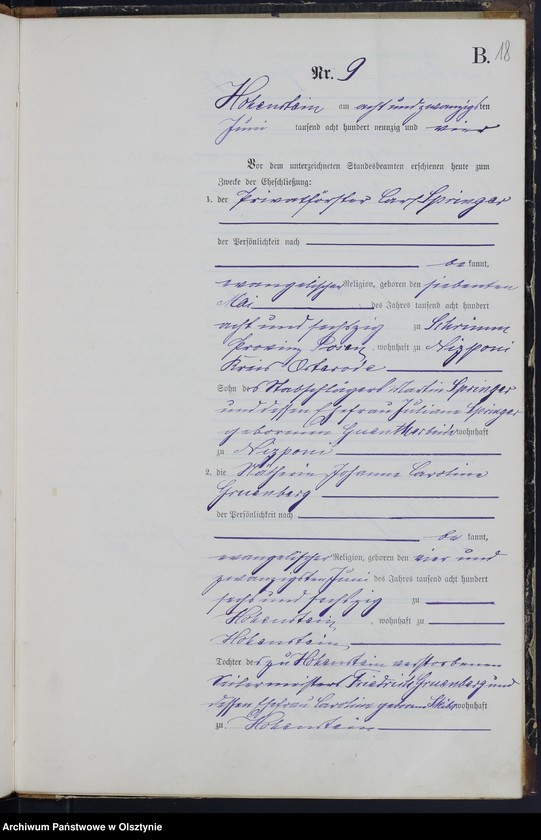 B. 18
Nr. 9
Hohenstein am acht und zwanzigsten
Juni tausend acht hundert neunzig und vier
Vor dem unterzeichneten Standesbeamten erschienen heute zum
Zwecke der Eheschließung:
1. der Privatförster Carl Springer
der Persönlichkeit nach
bekannt,
evangelischer Religion, geboren den siebenten
Mai des Jahres tausend acht hundert
acht und sechszig zu Schrimm
Provinz Posen, wohnhaft zu
Kreis Osterode
Sohn des Stabschlägers Martin Springer
und dessen Ehefrau Juliane Springer
geborenen wohnhaft
zu
2. die Näherin Johanne Caroline
Gruenberg
der Persönlichkeit nach
bekannt,
evangelischer Religion, geboren den vier und
zwanzigsten Juni des Jahres tausend acht hundert
sechs und sechszig zu
Hohenstein, wohnhaft zu
Hohenstein
Tochter des zu Hohenstein verstorbenen
Seilermeisters Friedrich Gruenberg und
dessen Ehefrau Caroline geborene wohnhaft
zu Hohenstein
Archiwum Państwowe w Olsztynie